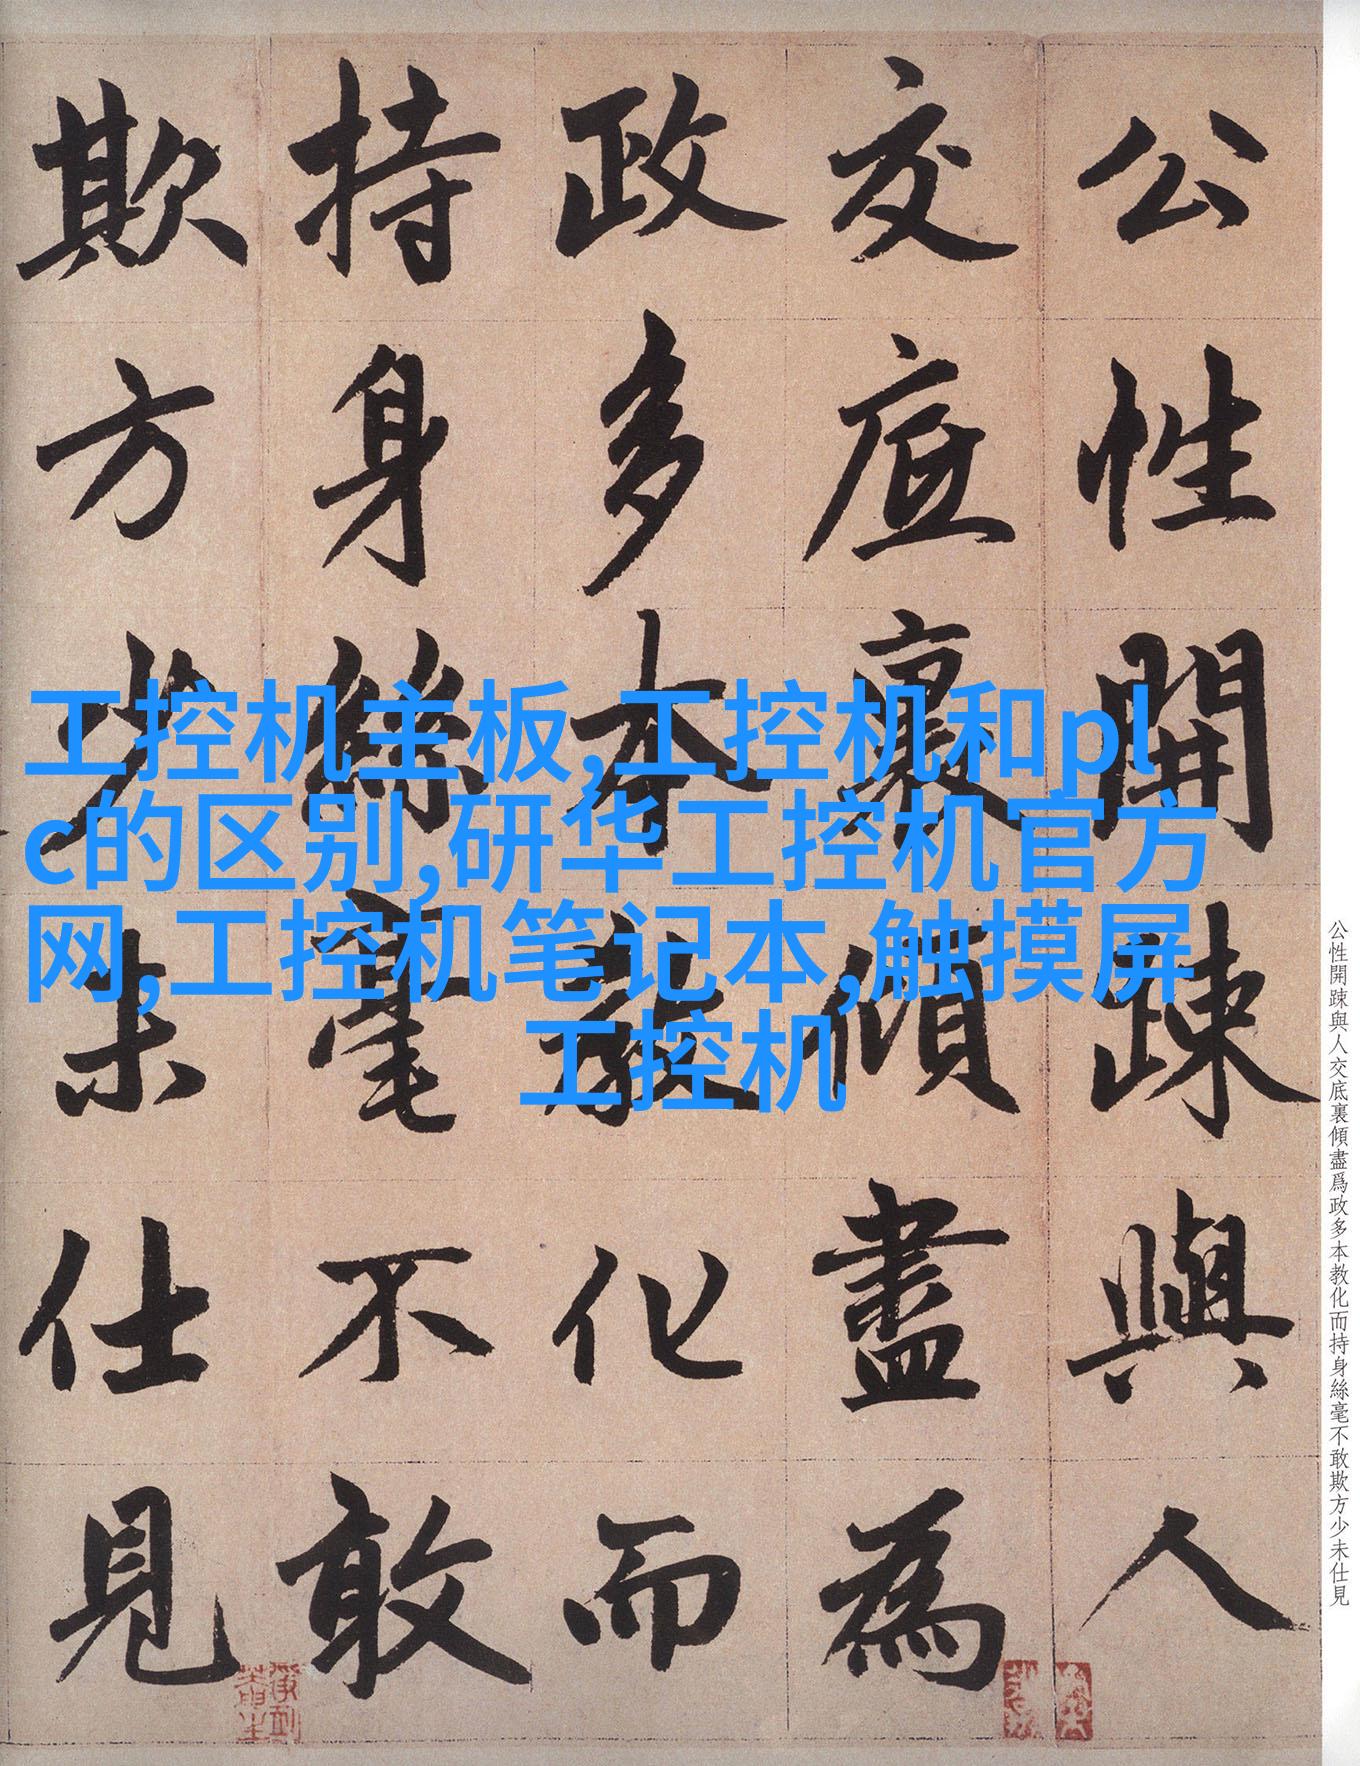 公性開踈與人
交底裏傾盡為
政多本教化而
持身絲毫不敢
欺方少未仕見
工控机主板,工控机和pl
c的区别,研华工控机官方
网,工控机笔记本,触摸屏
工控机
公性開踈與人交底裏傾盡爲政多本教化而持身絲毫不敢欺方少未仕見